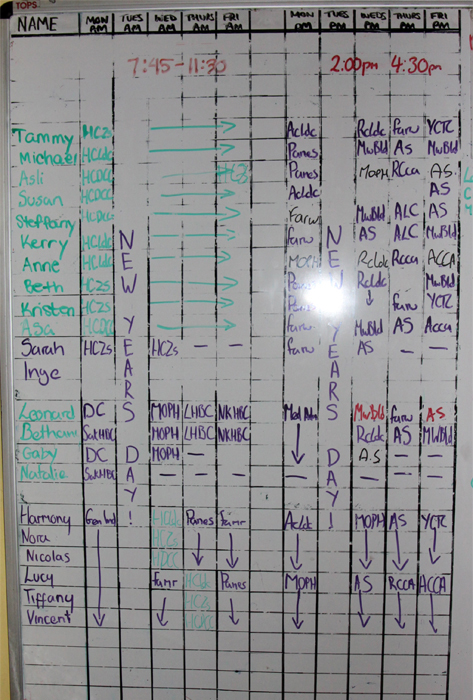 TOPS.
NAME MON AM TUES AM WED AM THURS AM FRI AM MON PM TUES PM WEDS PM THURS PM FRI PM
7:45-11:30 2:00pm 4:30pm
Tammy HCZs Acldc Rcldc farw YCTC
Michael HCldc Panes MwBld AS MwBld
Asli HCDCC HCZs Panes MOPH RCca AS.
Susan HCDCC Acldc AS
Steffany HCDCC Farw MwBld ALC AS
Kerry HCldc farw AS ALC MwBld
Anne HCldc MOPH Rcldc Rcca ACCA
Beth HCZs Rcldc MwBld
Kristen HCZs farw YCTC
Asa HCDCC farw MwBld AS Acca
Sarah HCZs HCZs – – farw AS – –
Inge
NEW YEARS DAY! NEW YEARS DAY!
Leonard DC MOPH LHBC NKHBC MwBld farw AS
Bethany SwHBC MOPH LHBC NKHBC Rcldc AS MWBld
Gaby DC MOPH – A.S – –
Natalie SwHBC – – – – – – –
Harmony HCldc Panes famr Acldc MOPH AS YCTC
Nora HCZs
Nicolas HDCC
Lucy famr HCldc Panes MOPH AS RCCA ACCA
Tiffany HCZs
Vincent HDCC